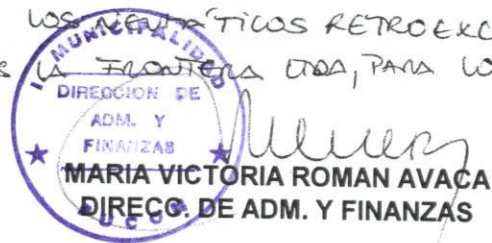 LOS NEUMÁTICOS RETROEXC
S LA FRONTERA LTDA, PARA LO
I. MUNICIPALIDAD
DIRECCION DE
ADM. Y
FINANZAS
PUCON
MARIA VICTORIA ROMAN AVACA
DIRECC. DE ADM. Y FINANZAS